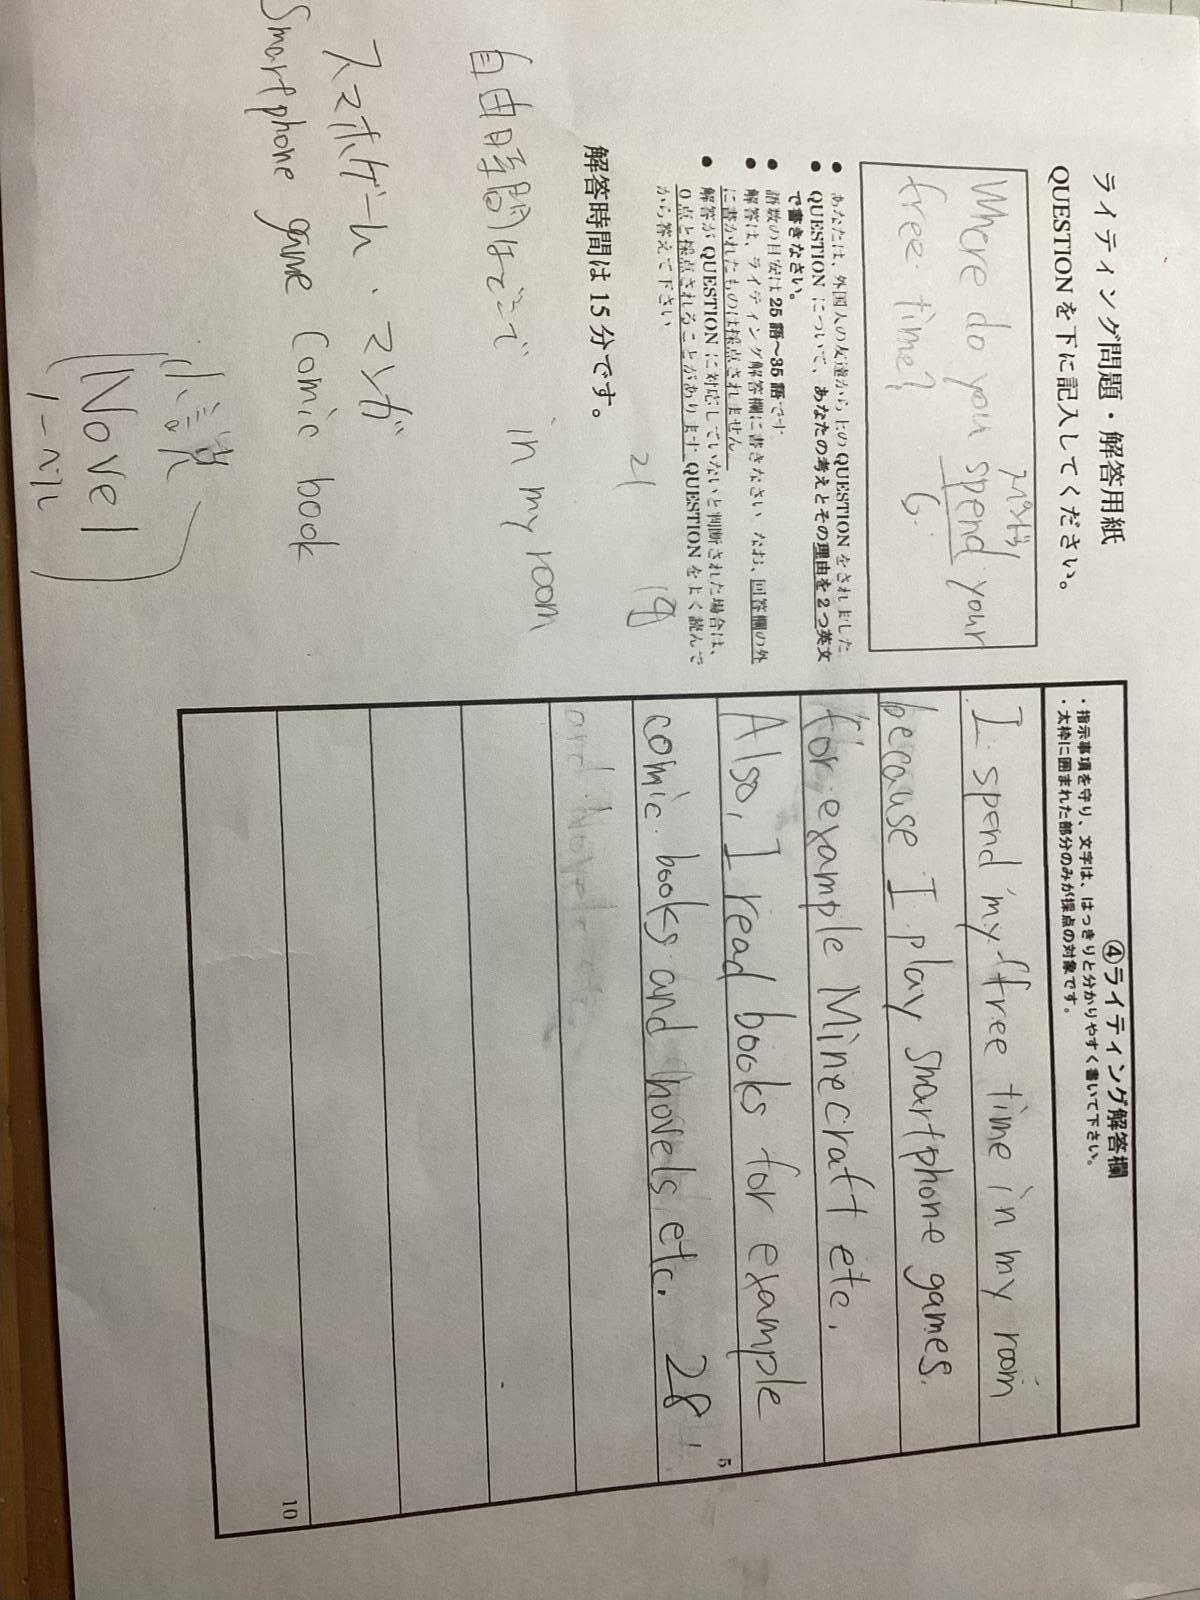 ライティング問題・解答用紙
QUESTIONを下に記入してください。
Where do you spend your
スペンド
free time? 6.
● あなたは、外国人の友達から上のQUESTIONをされました
● QUESTIONについて、あなたの考えとその理由を2つ英文
で書きなさい。
● 語数の目安は25語〜35語です
● 解答は、ライティング解答欄に書きなさい なお、回答欄の外
に書かれたものは採点されません
● 解答がQUESTIONに対応していないと判断された場合は、
0点と採点されることがあります QUESTIONをよく読んで
から答えて下さい
解答時間は15分です。
21
自由時間はどこで in my room
スマホゲーム、マンガ
Smartphone game Comic book
小説
(Novel)
ノーベル
④ライティング解答欄
・指示事項を守り、文字は、はっきりと分かりやすく書いて下さい。
・太枠に囲まれた部分のみが採点の対象です。
I spend my free time in my room
because I play smartphone games.
for example Minecraft etc.
Also, I read books for example
comic books and novels etc. 28
5
and Novels etc
10